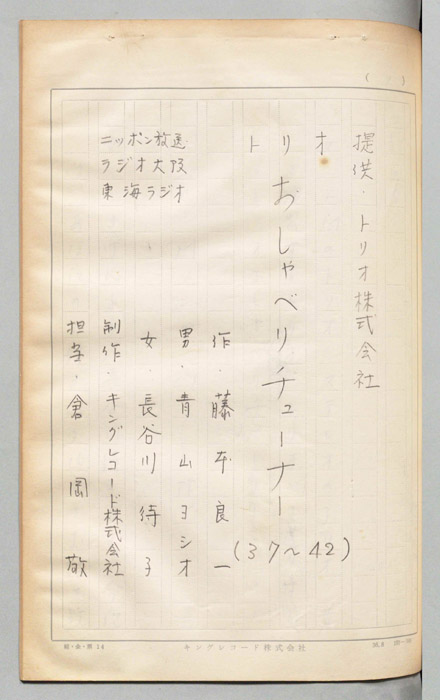 (　　)
提供・トリオ株式会社
トリオ
おしゃべりチューナー
(37〜42)
ニッポン放送
ラジオ大阪
東海ラジオ
作・藤本良一
男・青山ヨシオ
女・長谷川待子
制作・キングレコード株式会社
担当・倉岡敬
キングレコード株式会社